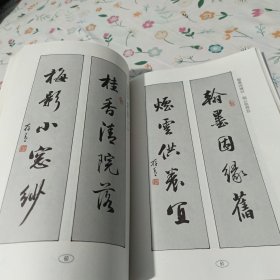 翰墨因缘旧
烟云供养宜
桂香清院落
梅影小窗纱